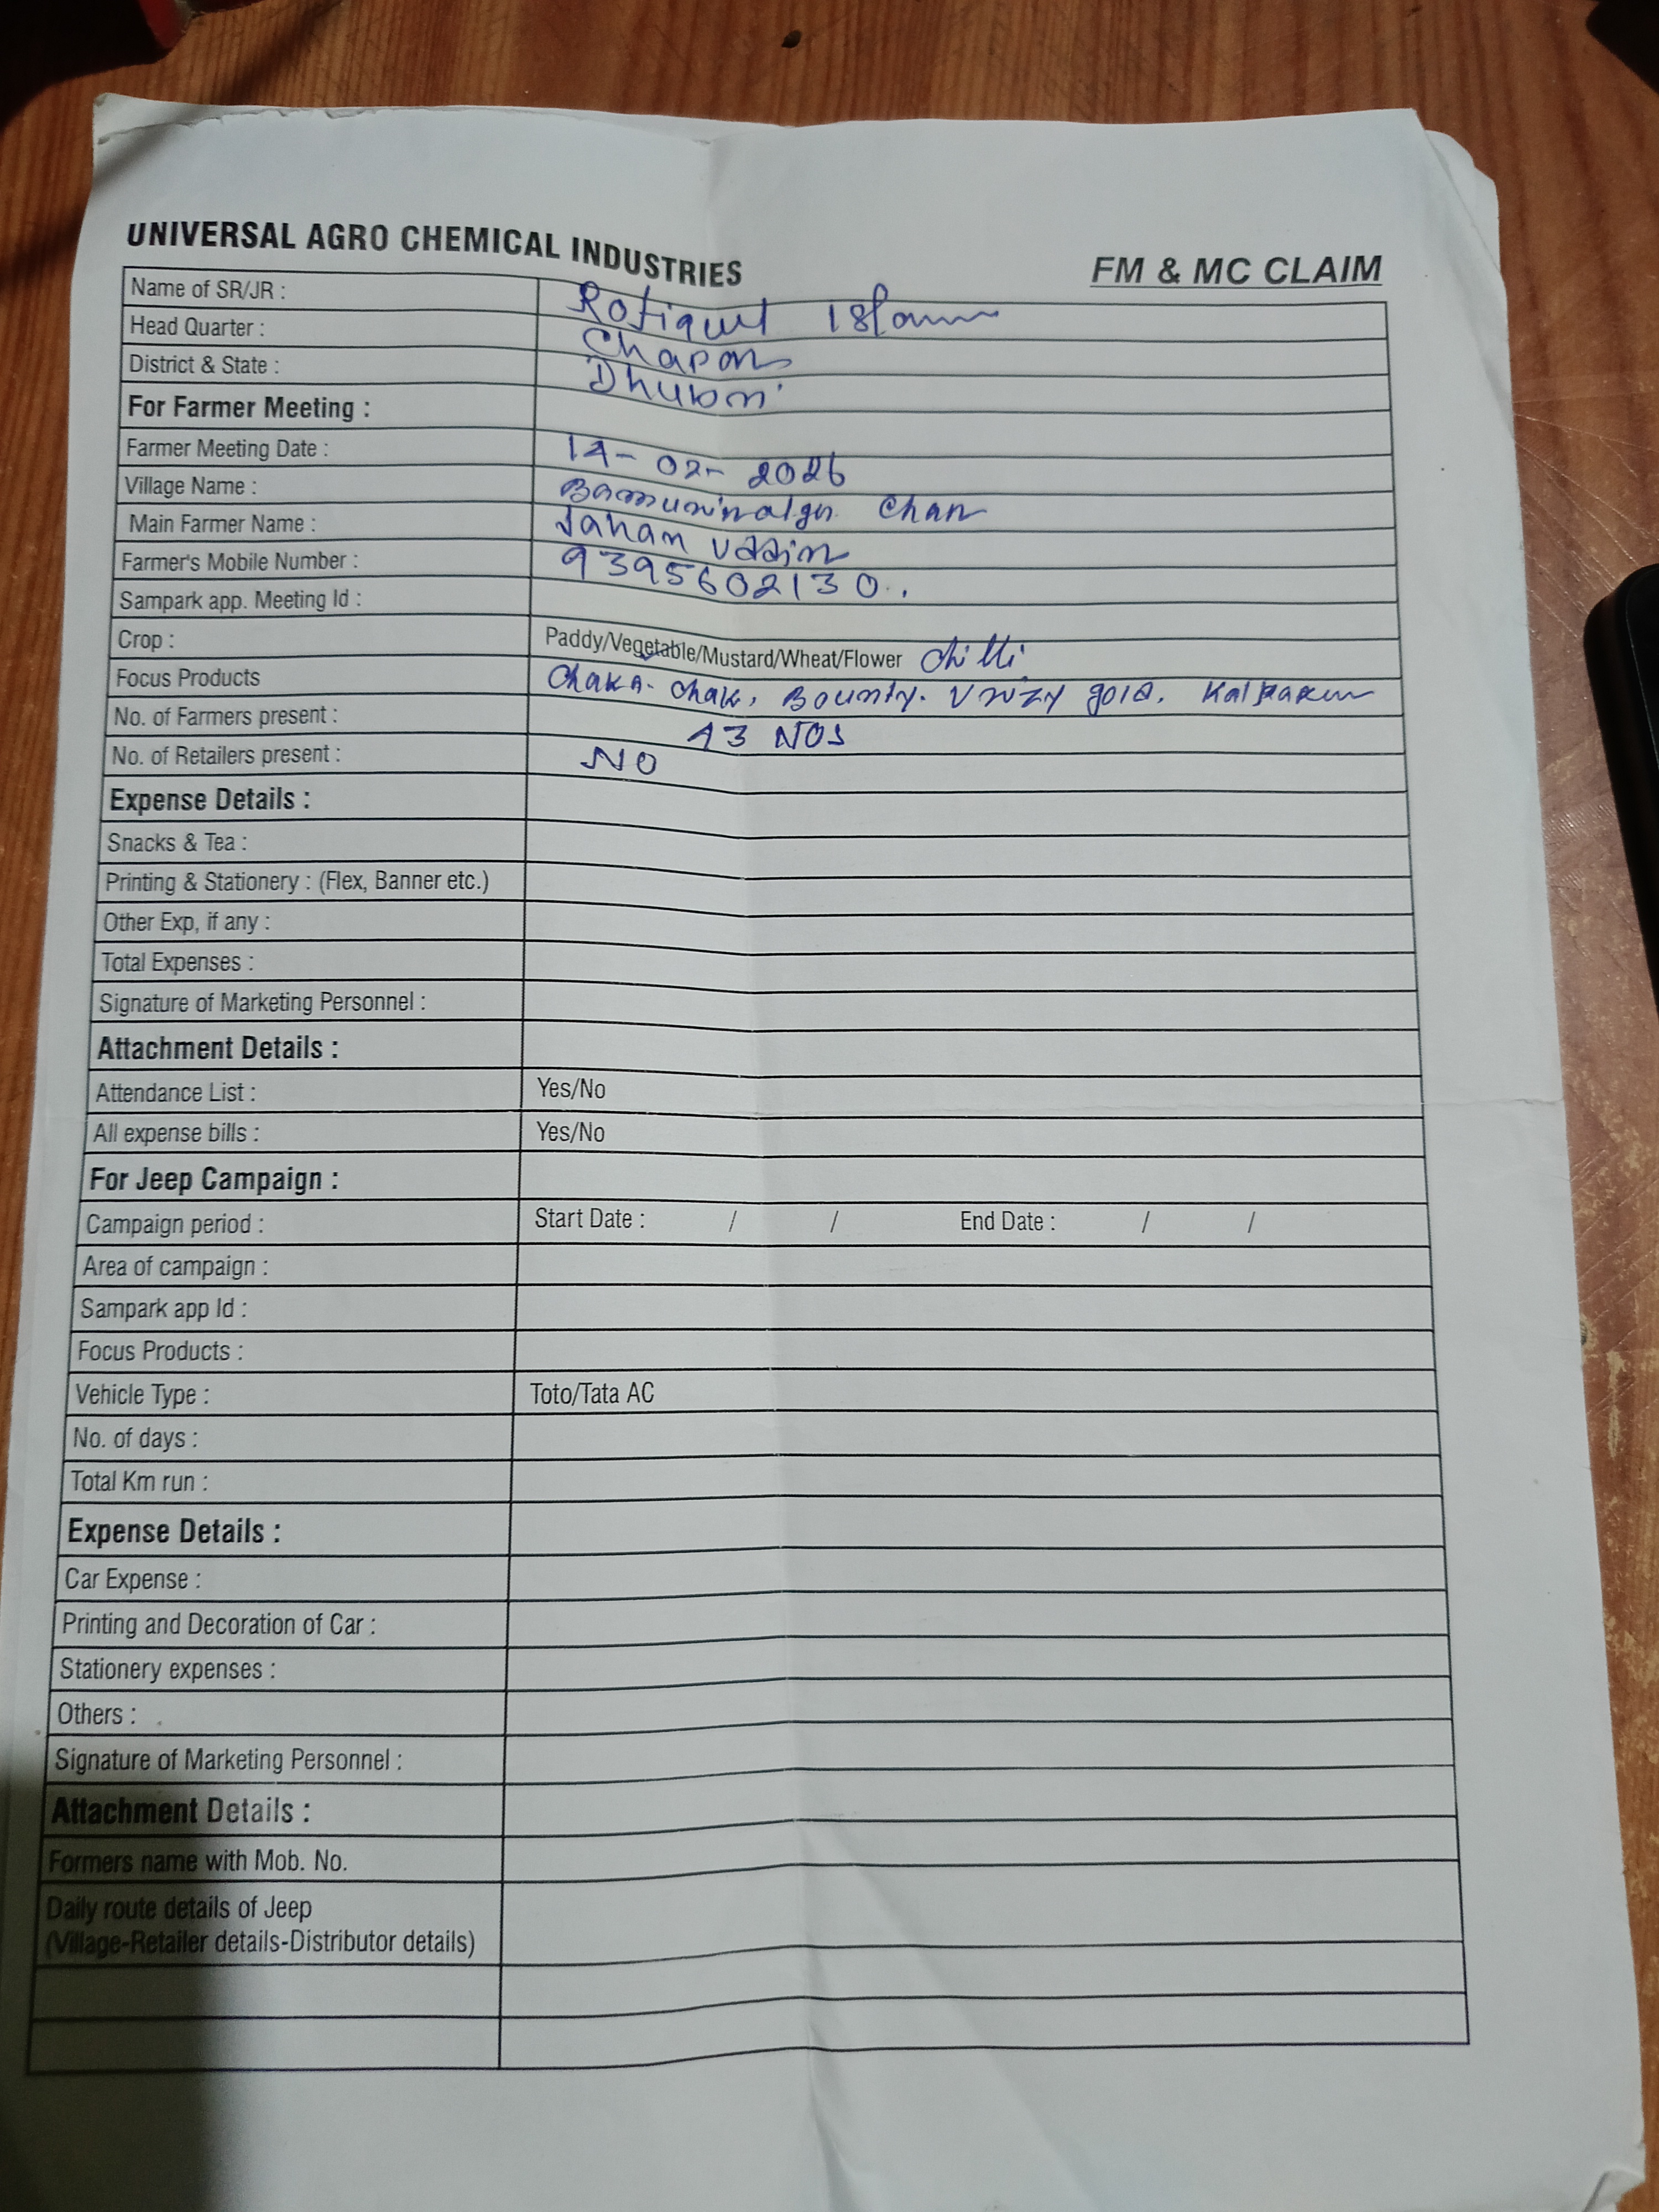 UNIVERSAL AGRO CHEMICAL INDUSTRIES
FM & MC CLAIM
Name of SR/JR : Rofiqul Islam
Head Quarter : Chapor
District & State : Dhubri
For Farmer Meeting :
Farmer Meeting Date : 14-02-2026
Village Name : Char
Main Farmer Name : Jahan Uddin
Farmer's Mobile Number : 9395602130.
Sampark app. Meeting Id :
Crop : Paddy/Vegetable/Mustard/Wheat/Flower Chilli
Focus Products Chaka-Chak, Bounty. gold.
No. of Farmers present : NOS
No. of Retailers present : NO
Expense Details :
Snacks & Tea :
Printing & Stationery : (Flex, Banner etc.)
Other Exp, if any :
Total Expenses :
Signature of Marketing Personnel :
Attachment Details :
Attendance List : Yes/No
All expense bills : Yes/No
For Jeep Campaign :
Campaign period : Start Date : / / End Date : / /
Area of campaign :
Sampark app Id :
Focus Products :
Vehicle Type : Toto/Tata AC
No. of days :
Total Km run :
Expense Details :
Car Expense :
Printing and Decoration of Car :
Stationery expenses :
Others :
Signature of Marketing Personnel :
Attachment Details :
Formers name with Mob. No.
Daily route details of Jeep
(Village-Retailer details-Distributor details)